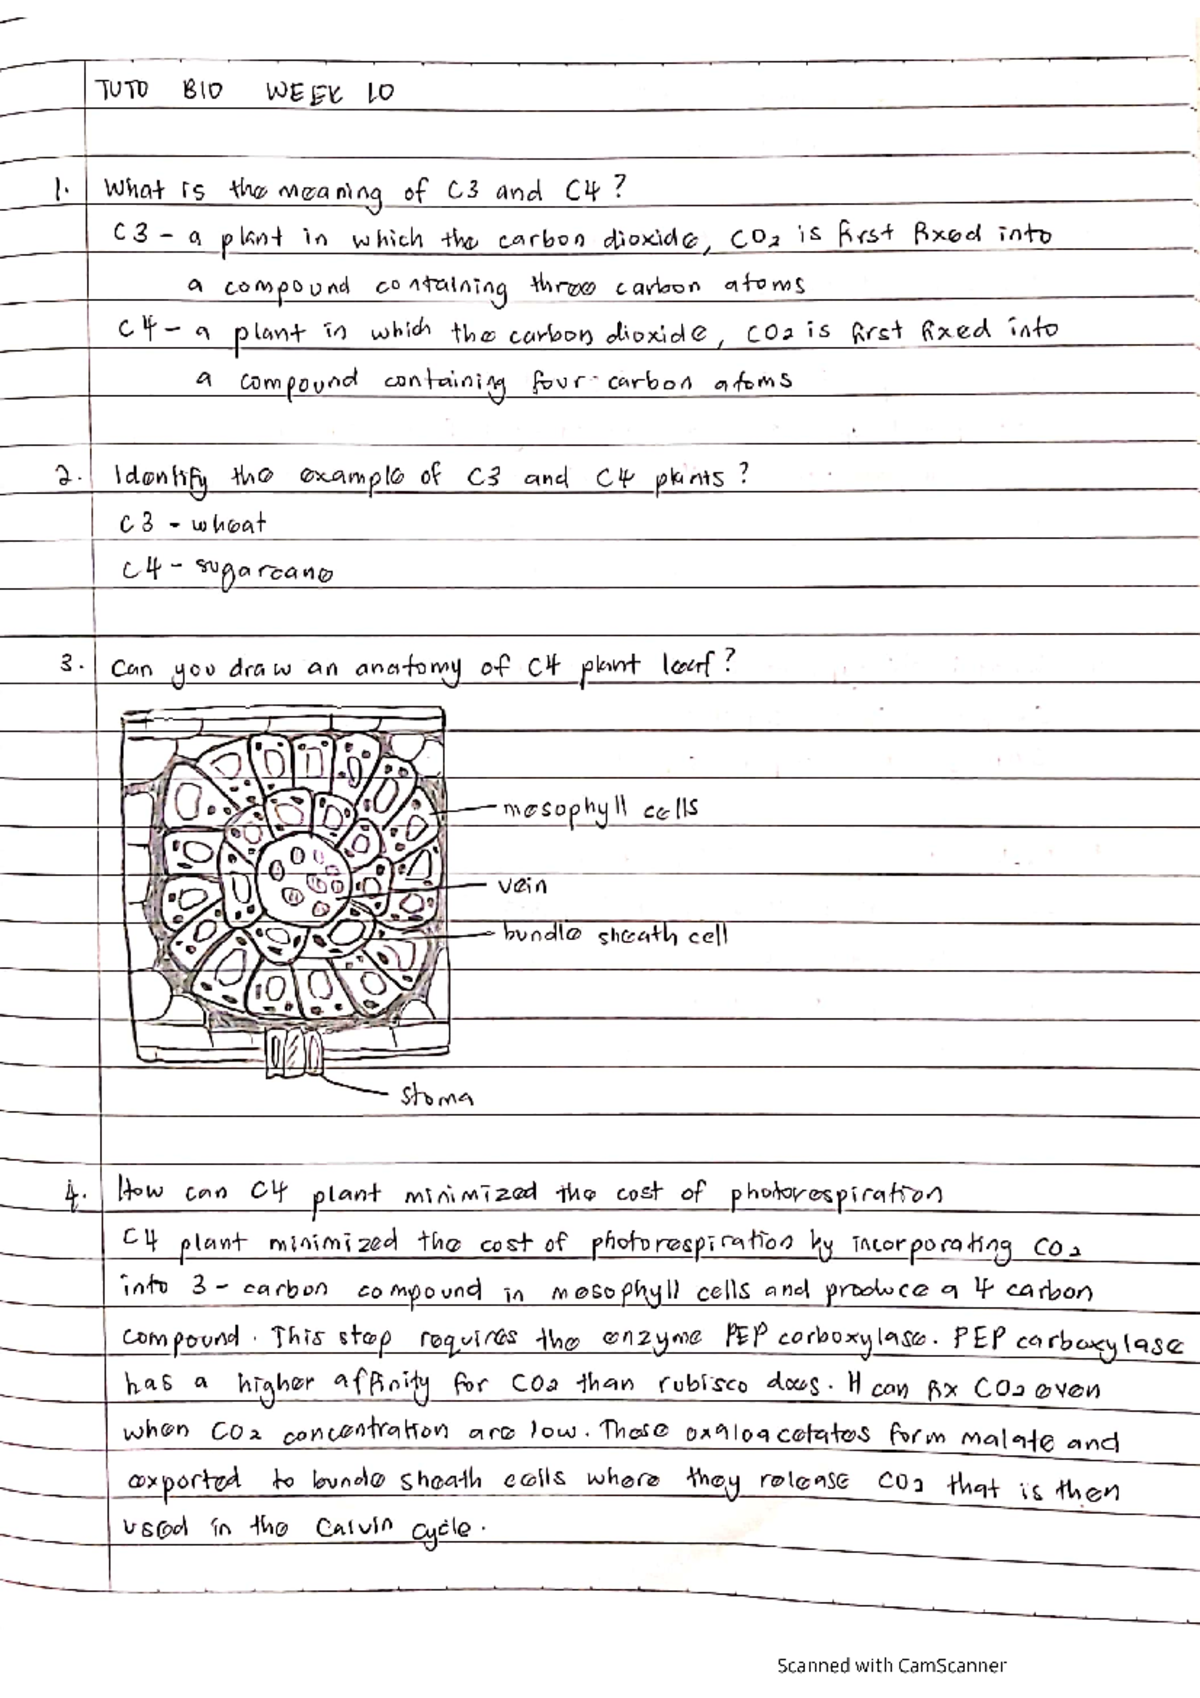 TUTO BIO WEEK 10
1. What is the meaning of C3 and C4?
C3 - a plant in which the carbon dioxide, CO2 is first fixed into
a compound containing three carbon atoms
C4 - a plant in which the carbon dioxide, CO2 is first fixed into
a compound containing four carbon atoms
2. Identify the example of C3 and C4 plants?
C3 - wheat
C4 - sugarcane
3. Can you draw an anatomy of C4 plant leaf?
mesophyll cells
vein
bundle sheath cell
stoma
4. How can C4 plant minimized the cost of photorespiration
C4 plant minimized the cost of photorespiration by incorporating CO2
into 3 - carbon compound in mesophyll cells and produce a 4 carbon
compound. This step requires the enzyme PEP corboxylase. PEP carboxylase
has a higher affinity for CO2 than rubisco does. It can fix CO2 even
when CO2 concentration are low. These oxaloacetates form malate and
exported to bundle sheath cells where they release CO2 that is then
used in the Calvin cycle.
Scanned with CamScanner